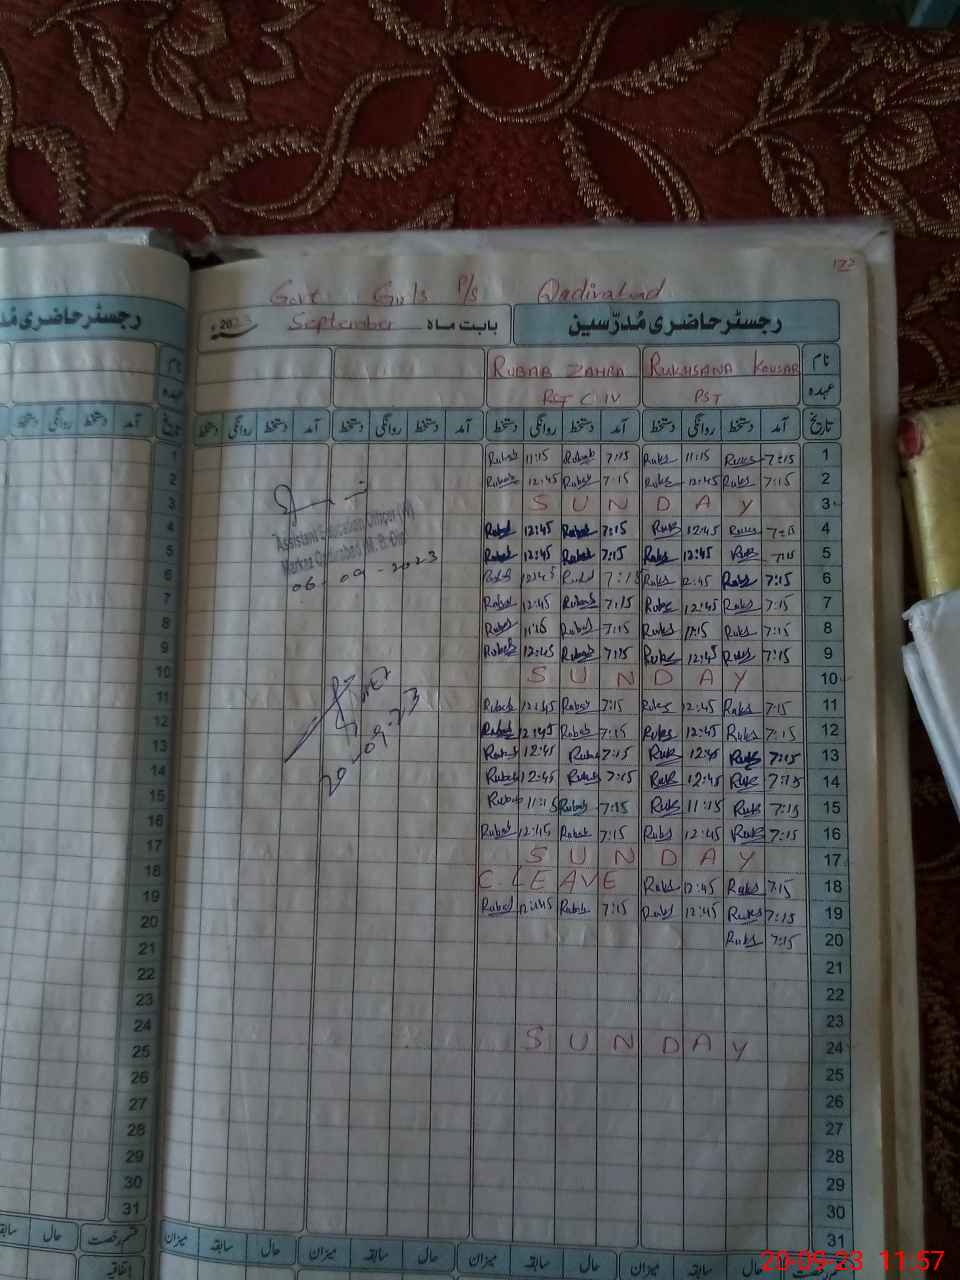 122
Govt Girls P/S Qadirabad
رجسٹر حاضری مُدرّسین
بابت ماہ September 2023
نام RUKHSANA KOUSAR RUBAB ZAHRA
عہدہ PST
تاریخ آمد دستخط روانگی دستخط آمد دستخط روانگی دستخط آمد دستخط روانگی دستخط آمد دستخط روانگی دستخط
Rubab 11:15 Rubab 7:15 Ruks 11:15 Ruks 7:15 1
Rubab 12:45 Rubab 7:15 Ruks 12:45 Ruks 7:15 2
SUNDAY 3
Rubab 12:45 Rubab 7:15 Ruks 12:45 Ruks 7:15 4
Rubab 12:45 Rubab 7:15 Ruks 12:45 Ruks 7:15 5
Rubab 12:45 Rubab 7:15 Ruks 12:45 Ruks 7:15 6
Rubab 12:45 Rubab 7:15 Ruks 12:45 Ruks 7:15 7
Rubab 11:15 Rubab 7:15 Ruks 11:15 Ruks 7:15 8
Rubab 12:45 Rubab 7:15 Ruks 12:45 Ruks 7:15 9
SUNDAY 10
Rubab 12:45 Rubab 7:15 Ruks 12:45 Ruks 7:15 11
Rubab 12:45 Rubab 7:15 Ruks 12:45 Ruks 7:15 12
Rubab 12:45 Rubab 7:15 Ruks 12:45 Ruks 7:15 13
Rubab 12:45 Rubab 7:15 Ruks 12:45 Ruks 7:15 14
Rubab 11:15 Rubab 7:15 Ruks 11:15 Ruks 7:15 15
Rubab 12:45 Rubab 7:15 Ruks 12:45 Ruks 7:15 16
SUNDAY 17
C.LEAVE Ruks 12:45 Ruks 7:15 18
Rubab 12:45 Rubab 7:15 Ruks 12:45 Ruks 7:15 19
Ruks 7:15 20
21
22
23
SUNDAY 24
25
26
27
28
29
30
31
Assistant Education Officer (W)
Markaz Qadirabad M. B. Din
06-09-2023
20-09-23
میزان سابقہ حال میزان سابقہ حال میزان سابقہ حال میزان سابقہ حال
رجسٹر حاضری مُد
نام
عہدہ
تاریخ آمد دستخط روانگی دستخط
1
2
3
4
5
6
7
8
9
10
11
12
13
14
15
16
17
18
19
20
21
22
23
24
25
26
27
28
29
30
31
قسم رخصت حال
اتفاقیہ
20-09-23 11:57